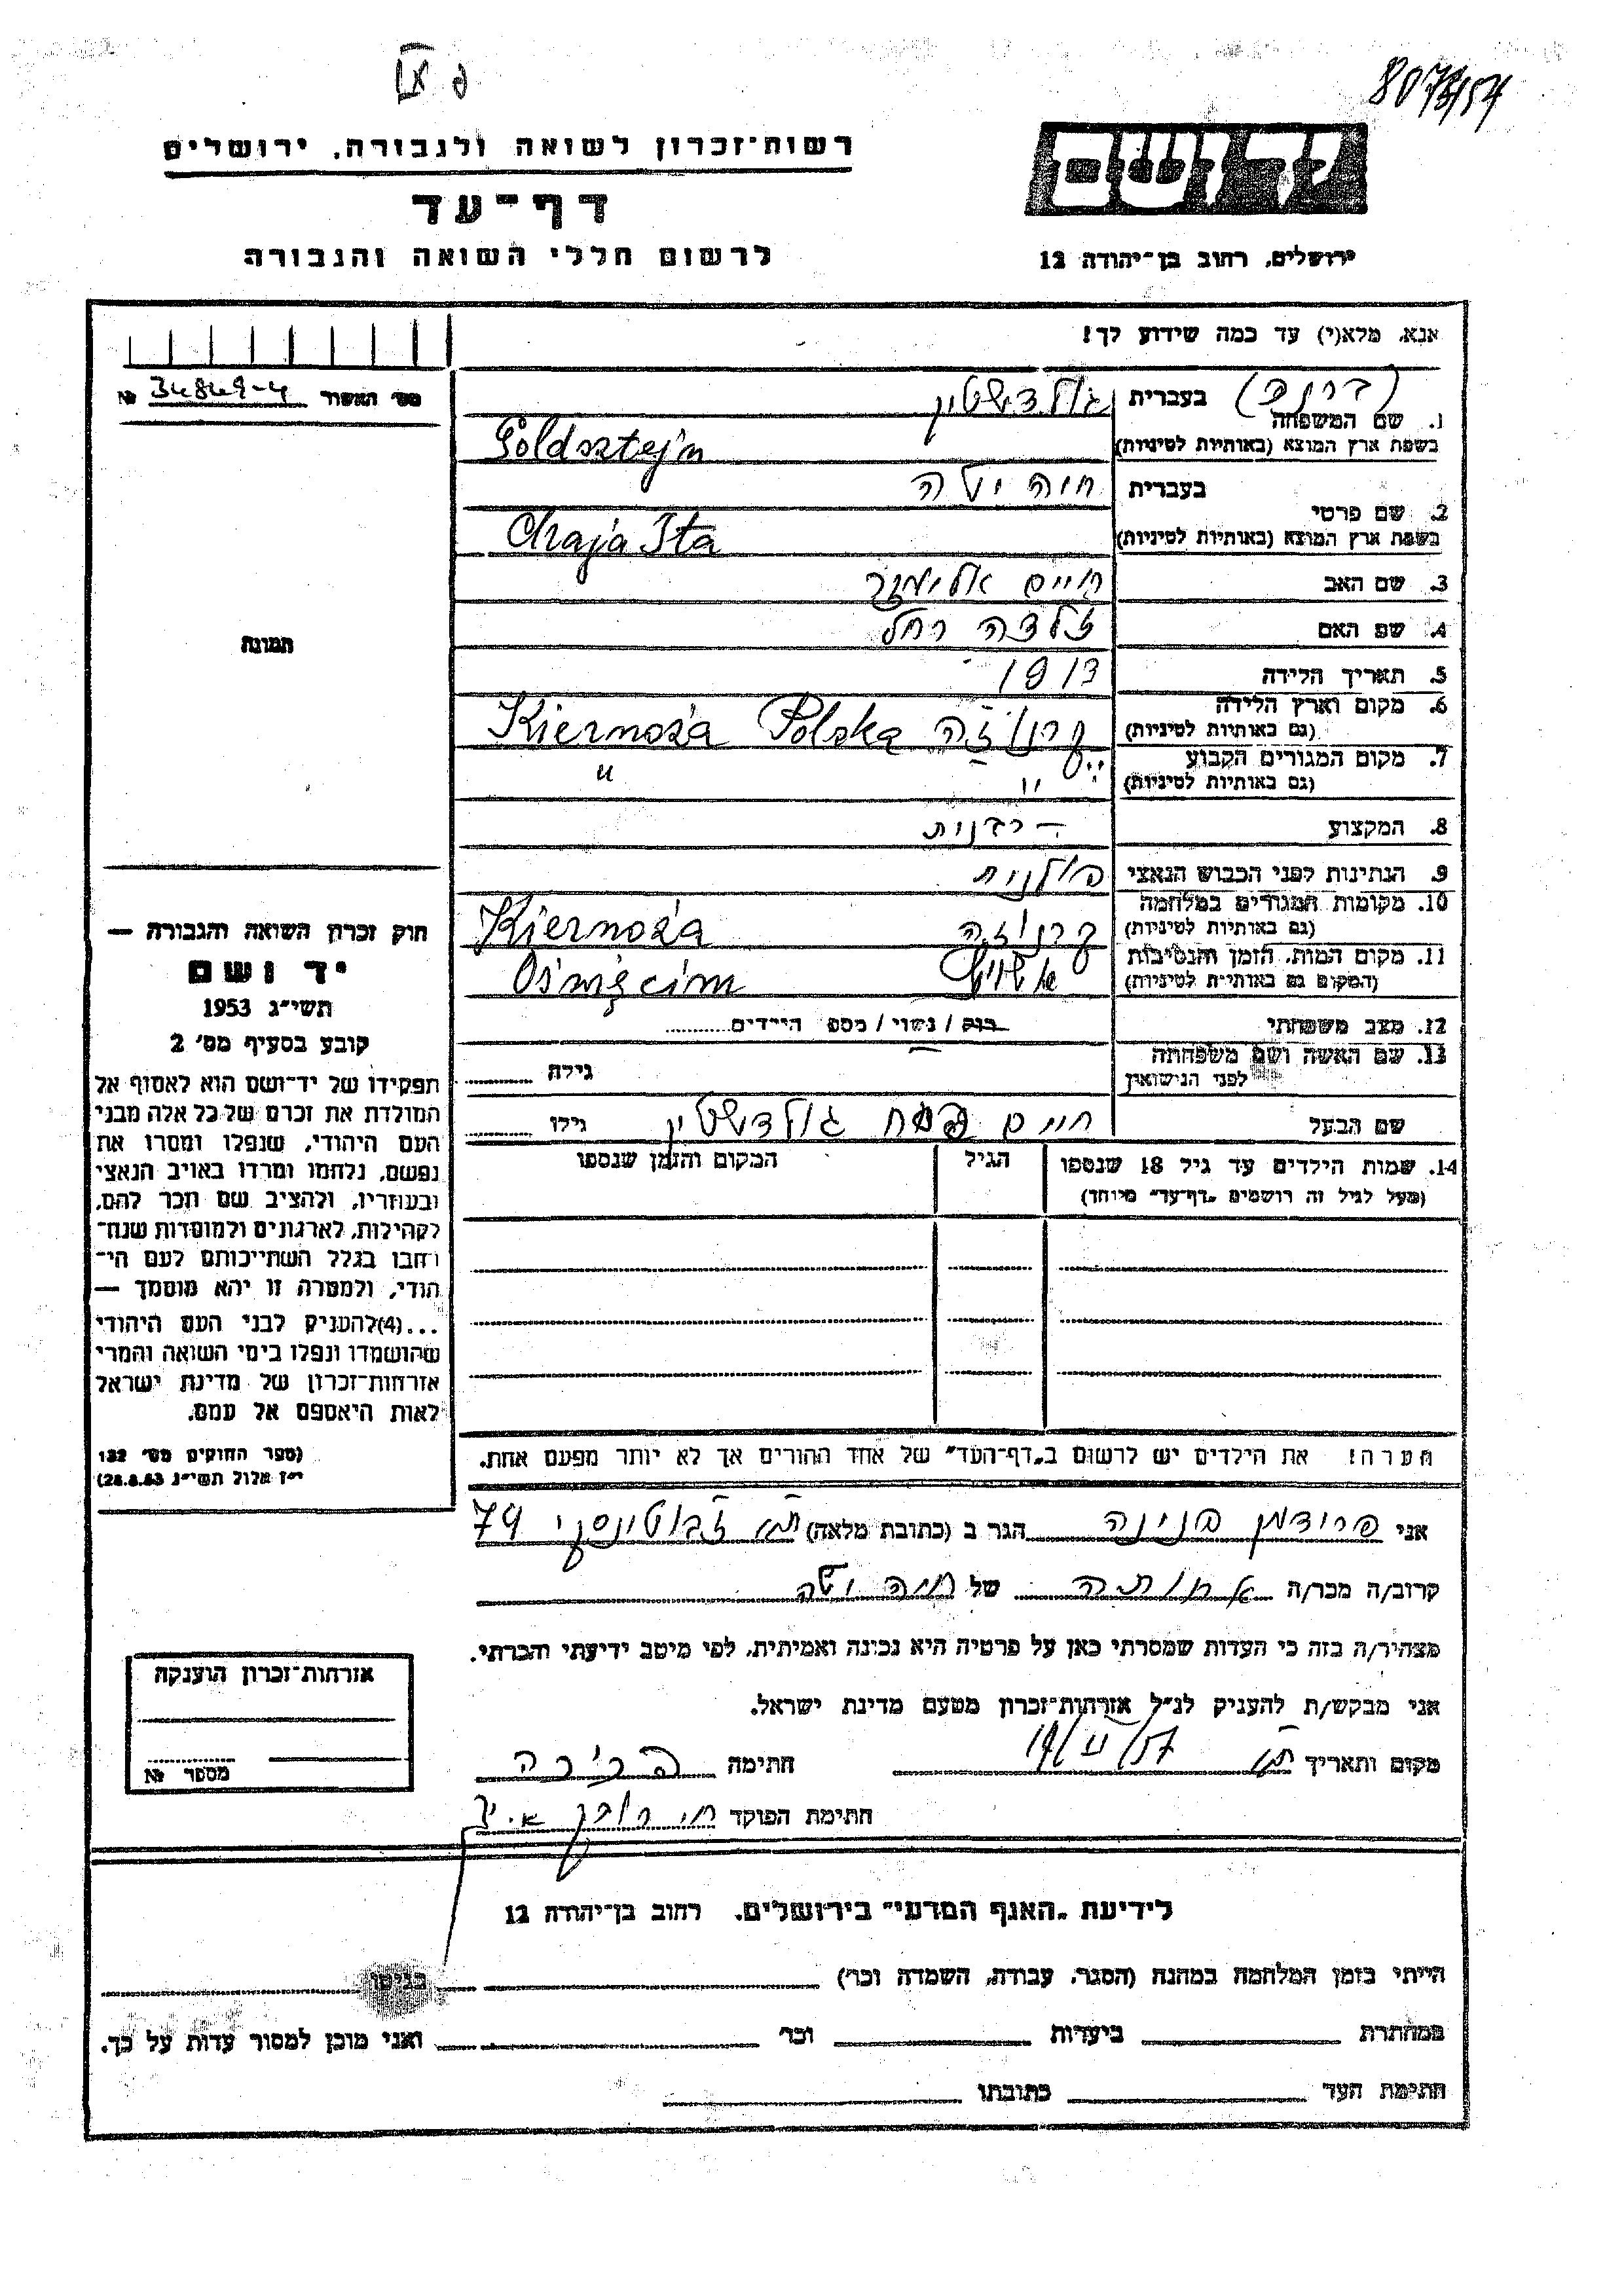 רשות־זכרון לשואה ולגבורה, ירושלים
דף־עד
לרשום חללי השואה והגבורה
יד ושם
ירושלים, רחוב בן־יהודה 12
אנא, מלא(י) עד כמה שידוע לך!
מס' האשור 34849-4 №
1. שם המשפחה בעברית גולדשטיין
בשפת ארץ המוצא (באותיות לטיניות) Goldsztejn
2. שם פרטי בעברית חיה יטה
בשפת ארץ המוצא (באותיות לטיניות) Chaja Ita
3. שם האב חיים אלימלך
4. שם האם זלדה רחל
5. תאריך הלידה 1913
6. מקום וארץ הלידה (גם באותיות לטיניות) קרנוזה Kiernoża Polska
7. מקום המגורים הקבוע (גם באותיות לטיניות) " "
8. המקצוע
9. הנתינות לפני הכבוש הנאצי פולנית
10. מקומות המגורים במלחמה (גם באותיות לטיניות) קרנוזה Kiernoża
11. מקום המות, הזמן והנסיבות (המקום גם באותיות לטיניות) Oświęcim
12. מצב משפחתי רווק / נשוי / מספ הילדים
13. שם האשה ושם משפחתה לפני הנישואין גילה
שם הבעל חיים פסח גולדשטיין גילו
14. שמות הילדים עד גיל 18 שנספו הגיל המקום והזמן שנספו
(מעל לגיל זה רושמים „דף־עד" מיוחד)
הערה! את הילדים יש לרשום ב„דף־העד" של אחד ההורים אך לא יותר מפעם אחת.
תמונה
חוק זכרון השואה והגבורה —
יד ושם
תשי"ג 1953
קובע בסעיף מס' 2
תפקידו של יד־ושם הוא לאסוף אל
המולדת את זכרם של כל אלה מבני
העם היהודי, שנפלו ומסרו את
נפשם, נלחמו ומרדו באויב הנאצי
ובעוזריו, ולהציב שם וזכר להם,
לקהילות, לארגונים ולמוסדות שנח־
רחבו בגלל השתייכותם לעם הי־
הודי, ולמטרה זו יהא מוסמך —
...(4)להעניק לבני העם היהודי
שהושמדו ונפלו בימי השואה והמרי
אזרחות־זכרון של מדינת ישראל
לאות היאספם אל עמם.
(ספר החוקים מס' 132
י"ז אלול תשי"ג 28.8.53)
אני פרידמן פנינה הגר ב (כתובת מלאה) ת"א ז'בוטינסקי 79
קרוב/ה מכר/ה אחותה של חיה יטה
מצהיר/ה בזה כי העדות שמסרתי כאן על פרטיה היא נכונה ואמיתית, לפי מיטב ידיעתי והכרתי.
אני מבקש/ת להעניק לנ"ל אזרחות־זכרון מטעם מדינת ישראל.
מקום ותאריך ת"א חתימה
חתימת הפוקד
אזרחות־זכרון הוענקה
מספר №
לידיעת „האגף המדעי" בירושלים, רחוב בן־יהודה 12
הייתי בזמן המלחמה במחנה (הסגר, עבודה, השמדה וכו') בגיטו
במחתרת ביערות וכו' ואני מוכן למסור עדות על כך.
חתימת העד כתובתו